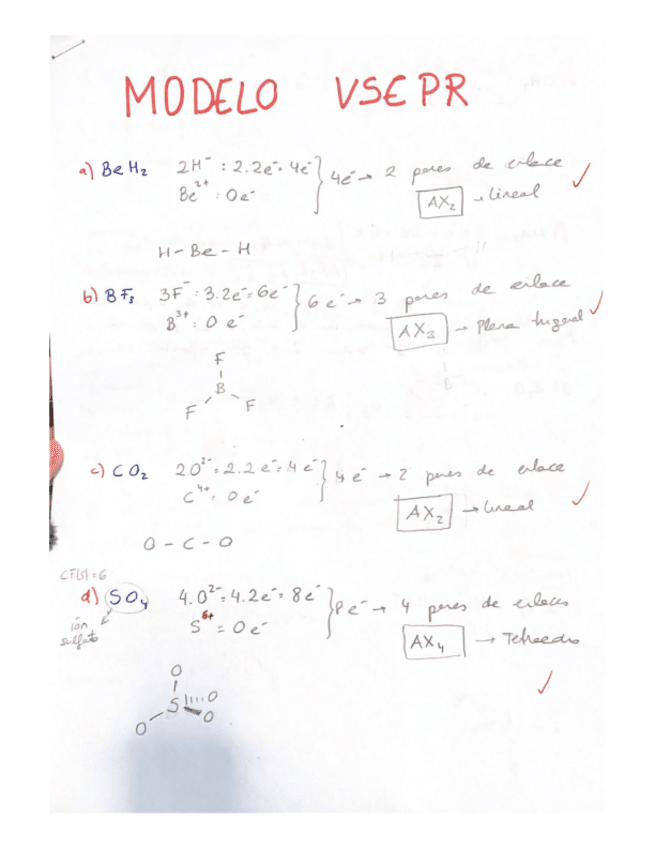 MODELO VSEPR
a) BeH₂ 2H⁻ : 2.2e⁻= 4e⁻ } 4e⁻ → 2 pares de enlace ✓
Be²⁺ : 0e⁻ AX₂ → Lineal
H - Be - H
b) BF₃ 3F⁻ : 3.2e⁻= 6e⁻ } 6e⁻ → 3 pares de enlace ✓
B³⁺ : 0 e⁻ AX₃ → Plana trigonal
F
B
F F
c) CO₂ 2O²⁻ = 2.2 e⁻= 4 e⁻ } 4 e⁻ → 2 pares de enlace ✓
C⁴⁺ : 0 e⁻ AX₂ → lineal
O - C - O
CF(S) = 6
d) SO₄ 4.O²⁻= 4.2e⁻= 8e⁻ } 8e⁻ → 4 pares de enlaces
ión S⁶⁺ = 0e⁻ AX₄ → Tetraedro
sulfato ✓
O
S O
O O